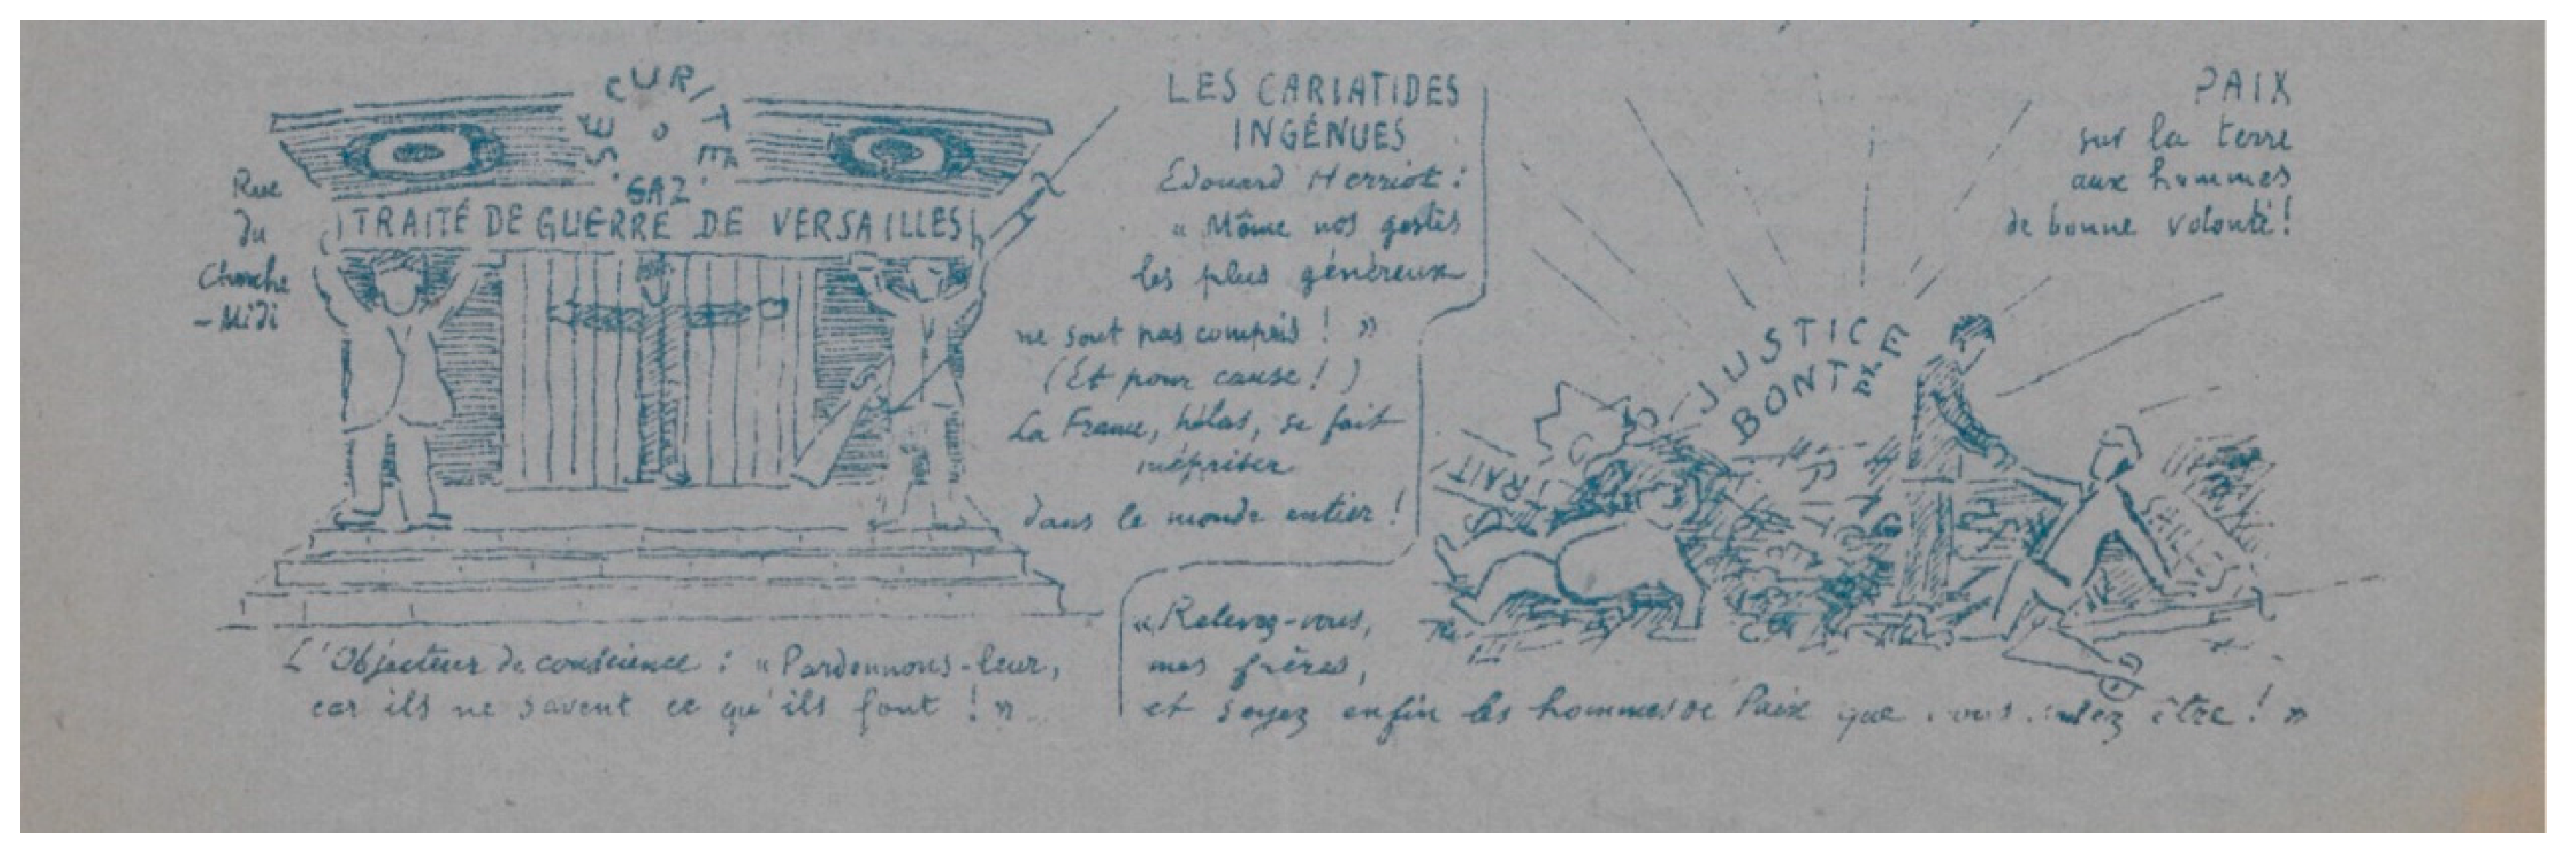 SÉCURITÉ
GAZ
TRAITÉ DE GUERRE DE VERSAILLES
Rue
du
Cherche
-Midi
L'Objecteur de conscience : « Pardonnons-leur,
car ils ne savent ce qu'ils font ! »
LES CARIATIDES
INGÉNUES
Edouard Herriot :
« Même nos gestes
les plus généreux
ne sont pas compris ! »
(Et pour cause ! )
La France, hélas, se fait
mépriser
dans le monde entier !
PAIX
sur la terre
aux hommes
de bonne volonté !
JUSTICE
BONTÉ
TRAIT
SAILLES
« Relevez-vous,
mes frères,
et soyez enfin les hommes de Paix que être ! »